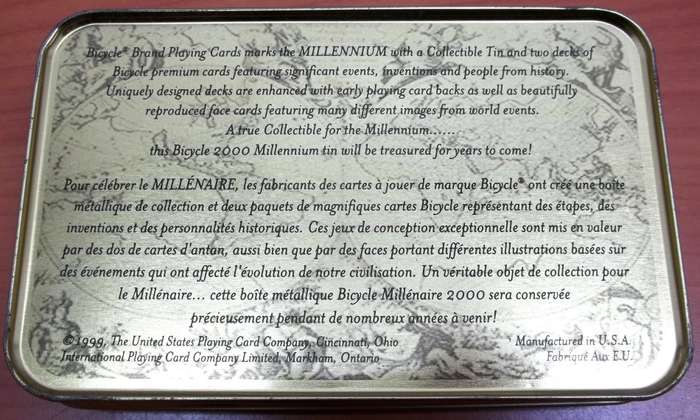 Bicycle® Brand Playing Cards marks the MILLENNIUM with a Collectible Tin and two decks of
Bicycle premium cards featuring significant events, inventions and people from history.
Uniquely designed decks are enhanced with early playing card backs as well as beautifully
reproduced face cards featuring many different images from world events.
A true Collectible for the Millennium......
this Bicycle 2000 Millennium tin will be treasured for years to come!
Pour célébrer le MILLÉNAIRE, les fabricants des cartes à jouer de marque Bicycle® ont créé une boîte
métallique de collection et deux paquets de magnifiques cartes Bicycle représentant des étapes, des
inventions et des personnalités historiques. Ces jeux de conception exceptionnelle sont mis en valeur
par des dos de cartes d'antan, aussi bien que par des faces portant différentes illustrations basées sur
des événements qui ont affecté l'évolution de notre civilisation. Un véritable objet de collection pour
le Millénaire... cette boîte métallique Bicycle Millénaire 2000 sera conservée
précieusement pendant de nombreux années à venir!
©1999, The United States Playing Card Company, Cincinnati, Ohio
International Playing Card Company Limited, Markham, Ontario
Manufactured in U.S.A.
Fabriqué Aux E.U.